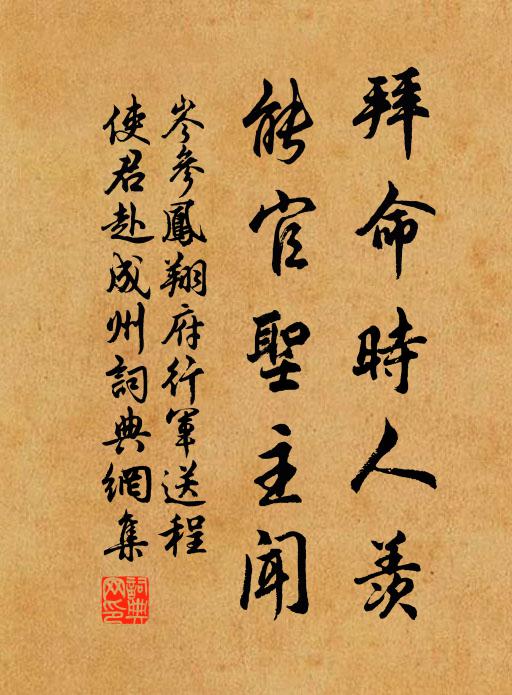 拜命時人羨
能官聖主聞
岑參鳳翔府行軍送程
使君赴成州詞典網集
詞典網印